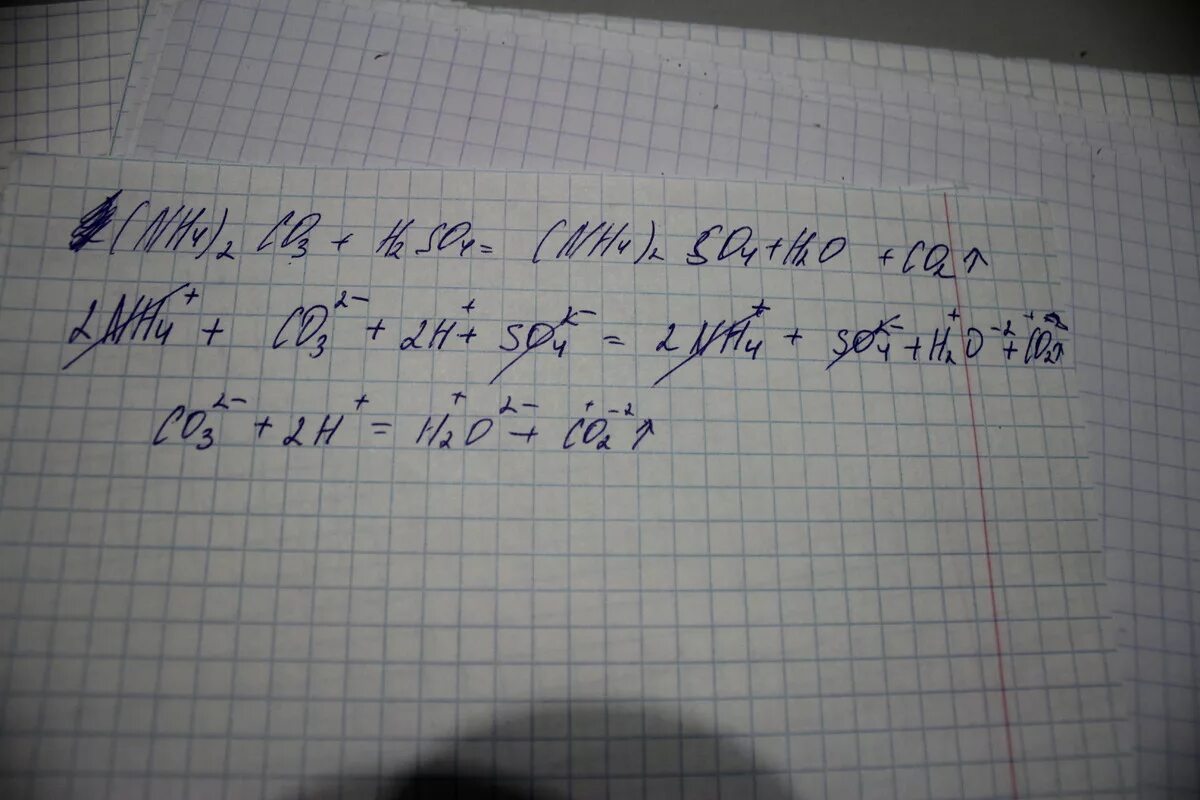 (NH₄)₂ CO₃ + H₂SO₄ = (NH₄)₂ SO₄ + H₂O + CO₂↑
2NH₄⁺ + CO₃²⁻ + 2H⁺ + SO₄²⁻ = 2NH₄⁺ + SO₄²⁻ + H₂⁺O⁻² + C⁺O₂⁻²↑
CO₃²⁻ + 2H⁺ = H₂⁺O²⁻ + C⁺O₂⁻²↑